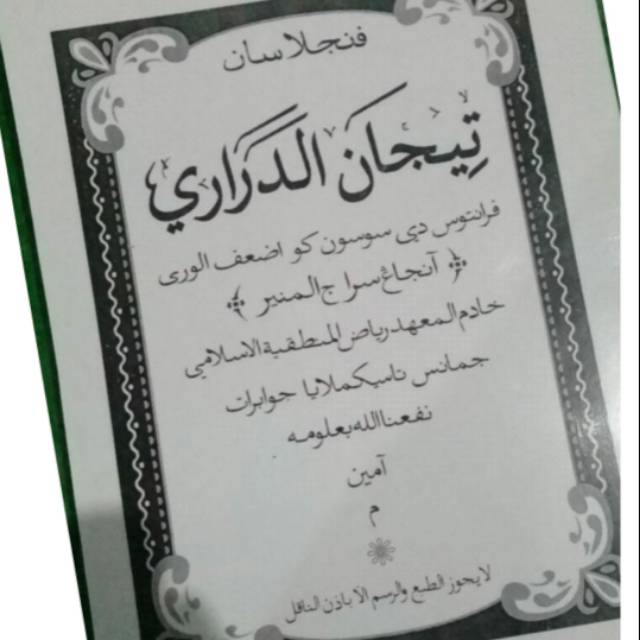 فنجلاسان
تِيجَانَ الدَرَارِي
فرانتوس دي سوسون كو اضعف الورى
﴿ آنجاغ سراج المنير ﴾
خادم المعهد رياض المنطقية الاسلامي
جمانس تاسيكملايا جوابرات
نفعنا الله بعلومه
آمين
م
لايجوز الطبع والرسم الا باذن الناقل